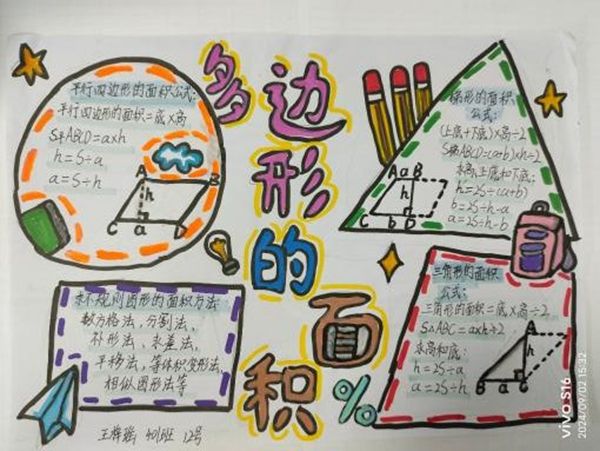 多边形的面积
平行四边形的面积公式:
平行四边形的面积=底×高
S平ABCD=a×h
h=S÷a
a=S÷h
A
B
h
C
a
D
梯形的面积
公式:
(上底+下底)×高÷2
S梯ABCD=(a+b)×h÷2
求高,上底和下底:
h=2S÷(a+b)
b=2S÷h-a
a=2S÷h-b
A a B
h
C b D
求不规则图形的面积方法
数方格法、分割法、
补形法、求差法、
平移法、等体积变形法、
相似图形法等
三角形的面积
公式:
三角形的面积=底×高÷2
S△ABC=a×h÷2
求高和底:
h=2S÷a
a=2S÷h
A
h
B a C
%
12号
vivo S16
2024/09/02 15:32